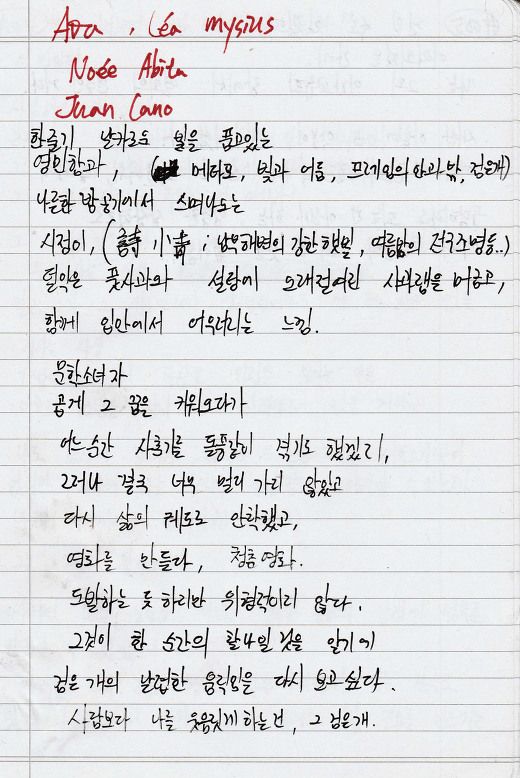 Ava, Léa mysius
Noée Abita
Juan Cano
한줄기 날카로운 빛을 품고있는
영민함과, ( 메타포, 빛과 어둠, 프레임의 안과 밖, 검은개)
나른한 방 공기에서 스며나오는
시정이, (詩 小靑 ; 남유해변의 강한 햇빛, 여름밤의 전구조명등..)
덜익은 풋사과와 설탕에 오래절여진 사과잼을 버무리고,
함께 입안에서 어우러지는 느낌.
문학소녀자
곱게 그 꿈을 키워오다가
어느순간 사춘기를 돌풍같이 겪기도 했겠지,
그러나 결국 너무 멀리 가지 않았고
다시 삶의 궤도로 안착했고,
영화를 만들다, 청춘영화.
도발하는 듯 하지만 위협적이지 않다.
그것이 한 순간의 찰나일 것을 알기에
검은 개의 날렵한 움직임을 다시 보고싶다.
사람보다 나를 웃음짓게 하는건, 그 검은개.